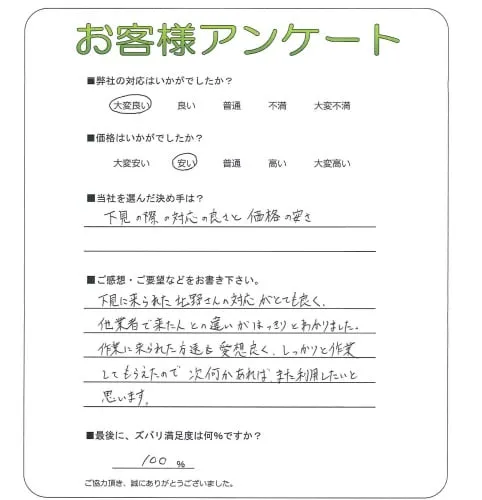 お客様アンケート
■弊社の対応はいかがでしたか？
大変良い　良い　普通　不満　大変不満
■価格はいかがでしたか？
大変安い　安い　普通　高い　大変高い
■当社を選んだ決め手は？
下見の際の対応の良さと価格の安さ
■ご感想・ご要望などをお書き下さい。
下見に来られた北野さんの対応がとても良く、
他業者で来た人との違いがはっきりとわかりました。
作業に来られた方達も愛想良く、しっかりと作業
してもらえたので 次何かあれば、また利用したいと
思います。
■最後に、ズバリ満足度は何％ですか？
100 ％
ご協力頂き、誠にありがとうございました。